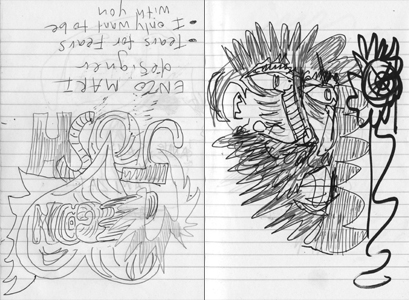 ENZO MARI
designer
• Tears for Fears
• I only want to be
with you